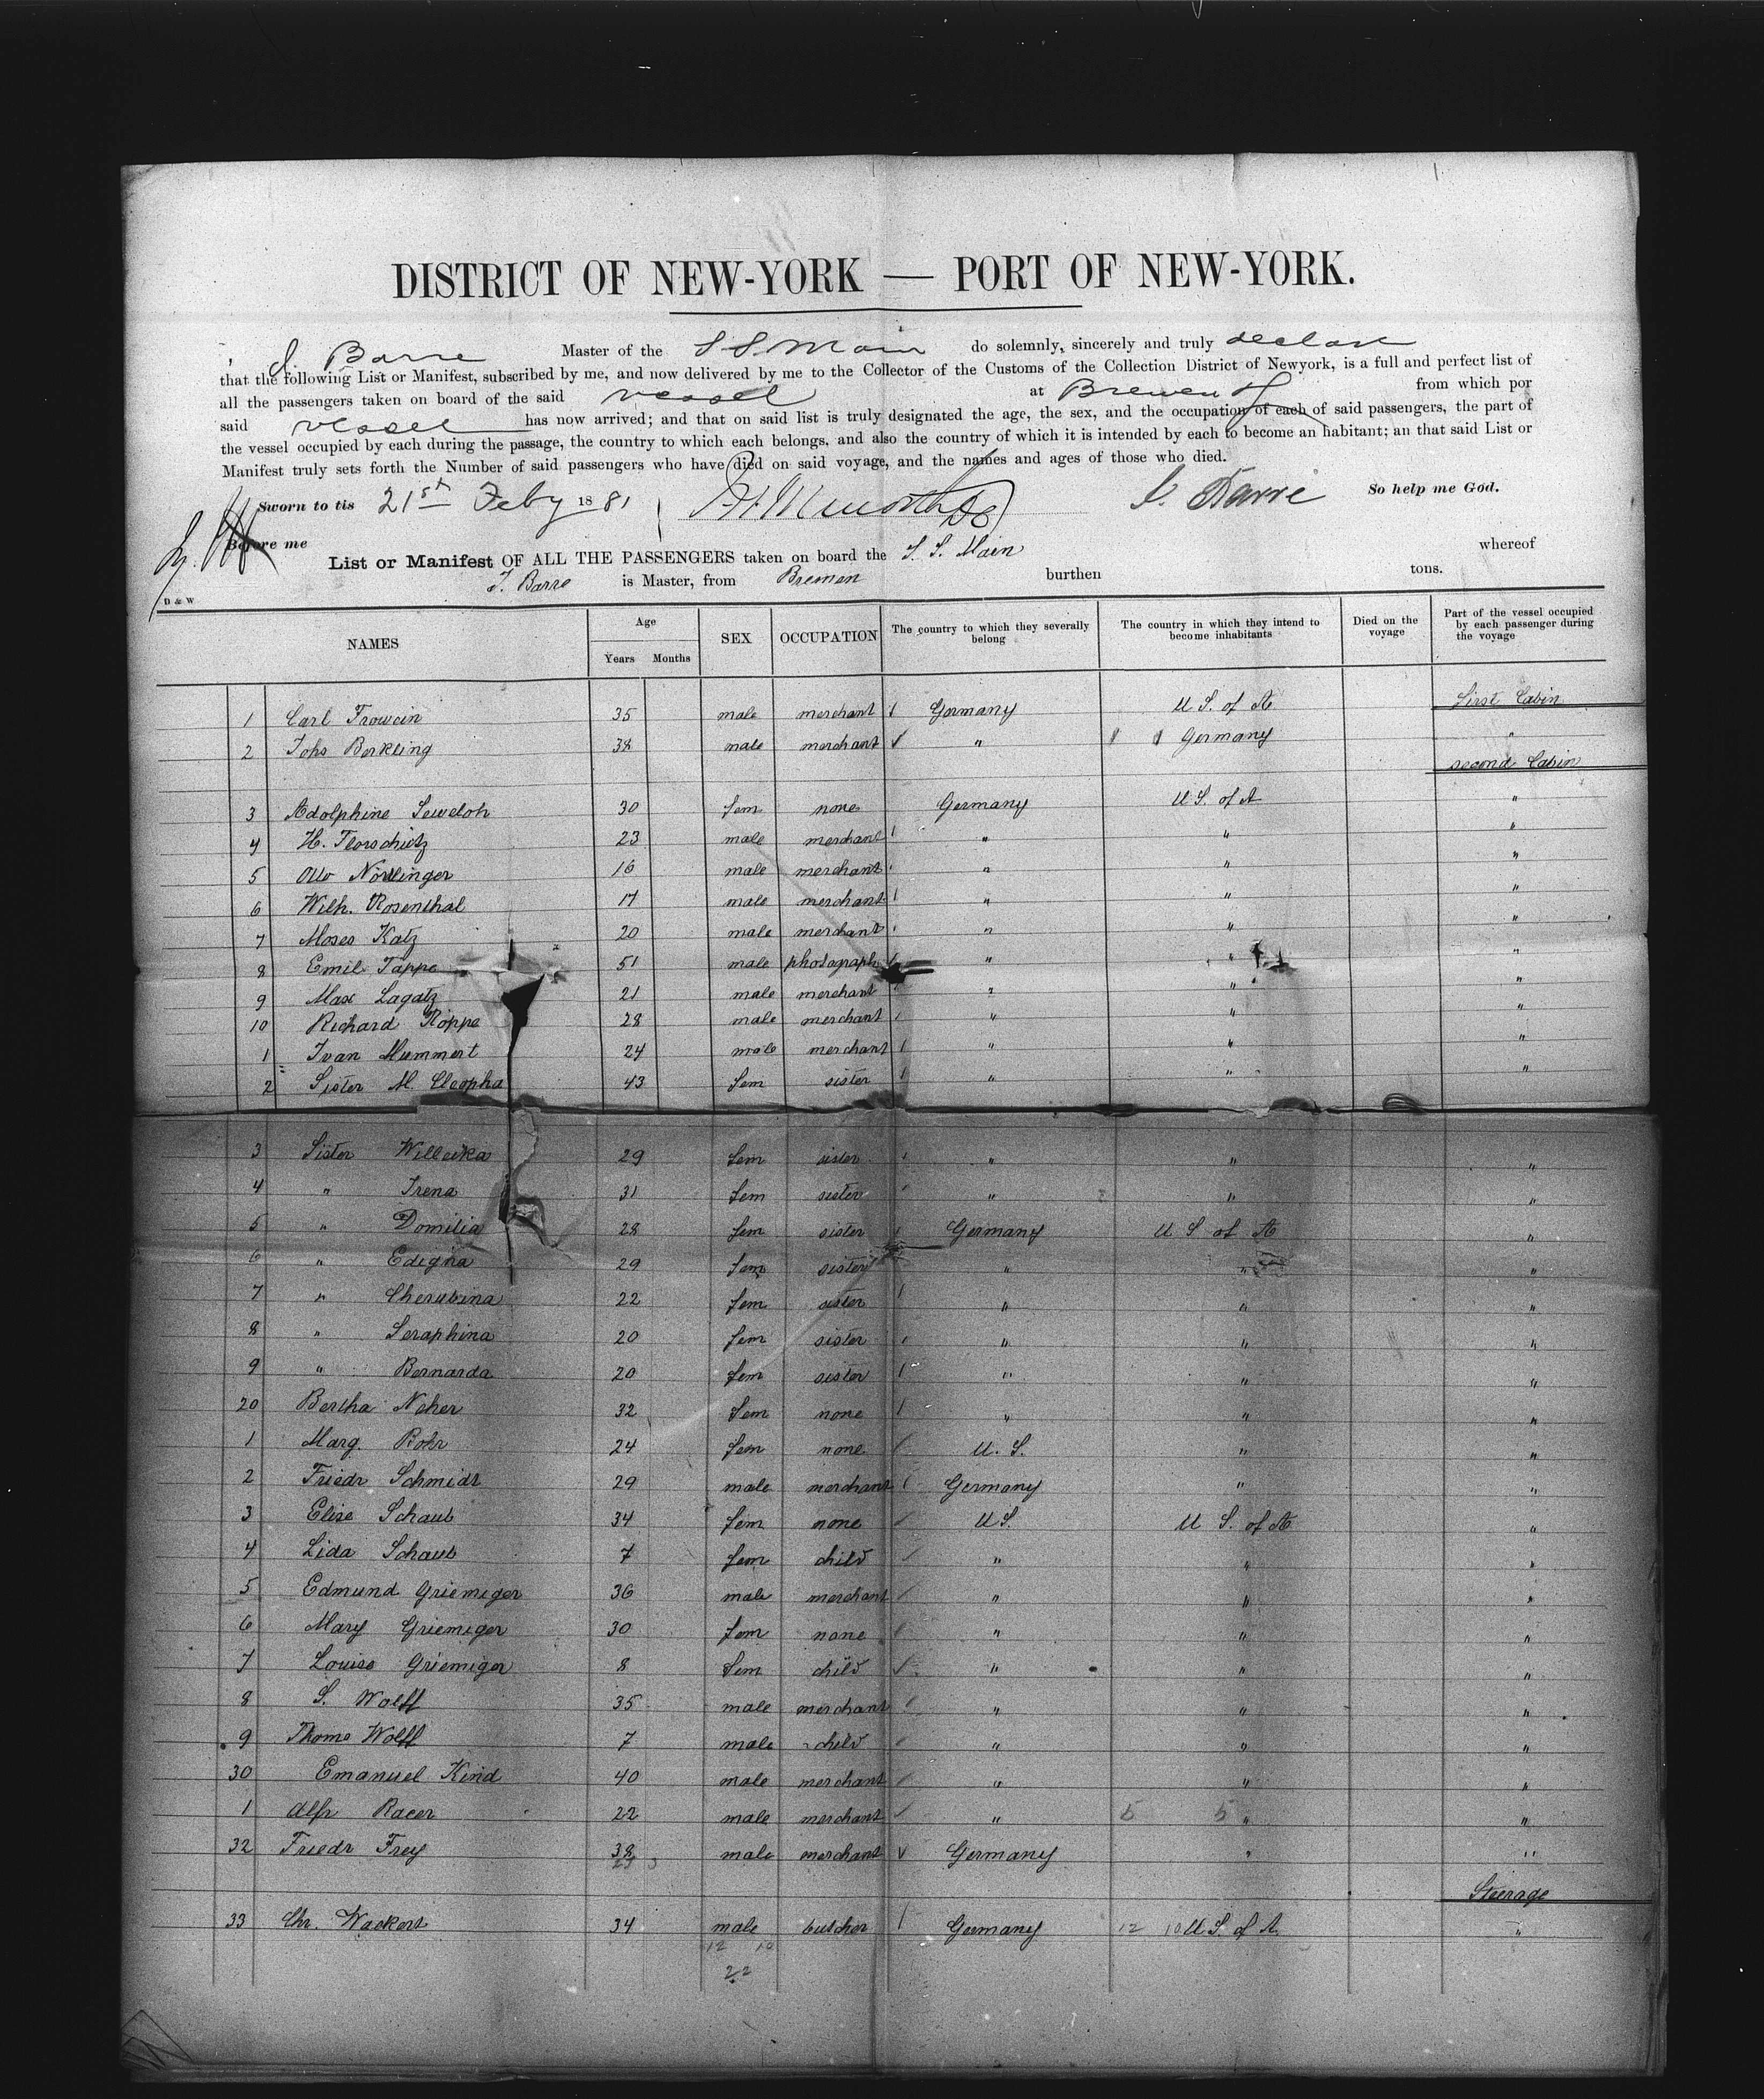 DISTRICT OF NEW-YORK — PORT OF NEW-YORK.
J. Barre Master of the S S. Main do solemnly, sincerely and truly declare
that the following List or Manifest, subscribed by me, and now delivered by me to the Collector of the Customs of the Collection District of Newyork, is a full and perfect list of
all the passengers taken on board of the said vessel at Bremen from which por
said vessel has now arrived; and that on said list is truly designated the age, the sex, and the occupation of each of said passengers, the part of
the vessel occupied by each during the passage, the country to which each belongs, and also the country of which it is intended by each to become an habitant; an that said List or
Manifest truly sets forth the Number of said passengers who have died on said voyage, and the names and ages of those who died.
Sworn to tis 21st Feby 1881 J. Barre So help me God.
Before me
List or Manifest OF ALL THE PASSENGERS taken on board the S. S. Main whereof
J. Barre is Master, from Bremen burthen tons.
D & W
NAMES Age Years Months SEX OCCUPATION The country to which they severally belong The country in which they intend to become inhabitants Died on the voyage Part of the vessel occupied by each passenger during the voyage
First Cabin
1 Carl Frowein 35 male merchant Germany U S. of A.
2 Johs Berkling 38 male merchant " Germany "
second Cabin
3 Adolphine Leweloh 30 fem none Germany U S. of A "
4 H. Florschütz 23 male merchant " " "
5 Otto Nördlinger 16 male merchant " " "
6 Wilh. Rosenthal 17 male merchant " " "
7 Moses Katz 20 male merchant " " "
8 Emil Tappe 51 male photograph " " "
9 Max Lagatz 21 male merchant " " "
10 Richard Köppe 28 male merchant " " "
1 Ivan Mummert 24 male merchant " " "
2 Sister M. Cleopha 43 fem sister " " "
3 Sister Willeika 29 fem sister " " "
4 " Irena 31 fem sister " " "
5 " Domilia 28 fem sister Germany U S of A "
6 " Edigna 29 fem sister " " "
7 " Cherubina 22 fem sister " " "
8 " Seraphina 20 fem sister " " "
9 " Bernarda 20 fem sister " " "
20 Bertha Neher 32 fem none " " "
1 Marg. Rohr 24 fem none U. S. " "
2 Friedr Schmidt 29 male merchant Germany " "
3 Elise Schaub 34 fem none U S. U S. of A "
4 Lida Schaub 7 fem child " " "
5 Edmund Griemiger 36 male merchant " " "
6 Mary Griemiger 30 fem none " " "
7 Louise Griemiger 8 fem child " " "
8 S. Wolff 35 male merchant " " "
9 Thoms Wolff 7 male child " " "
30 Emanuel Kind 40 male merchant " " "
1 Alfr Racer 22 male merchant " 5 5 " "
32 Friedr Frey 38 male merchant Germany " "
Steerage
33 Chr. Wackert 34 male butcher Germany 12 10 U S. of A. "
12 10
22